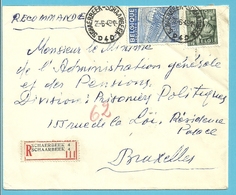 RECOMMANDÉ
SCHAERBEEK-SCHAARBEEK
D4D
BELGIQUE
Monsieur le Ministre
de l'Administration générale
et des Pensions,
Division: Prisonniers Politiques
155 rue de la Loi, Résidence
Palace
62
R
SCHAERBEEK 4
SCHAARBEEK
111
Bruxelles